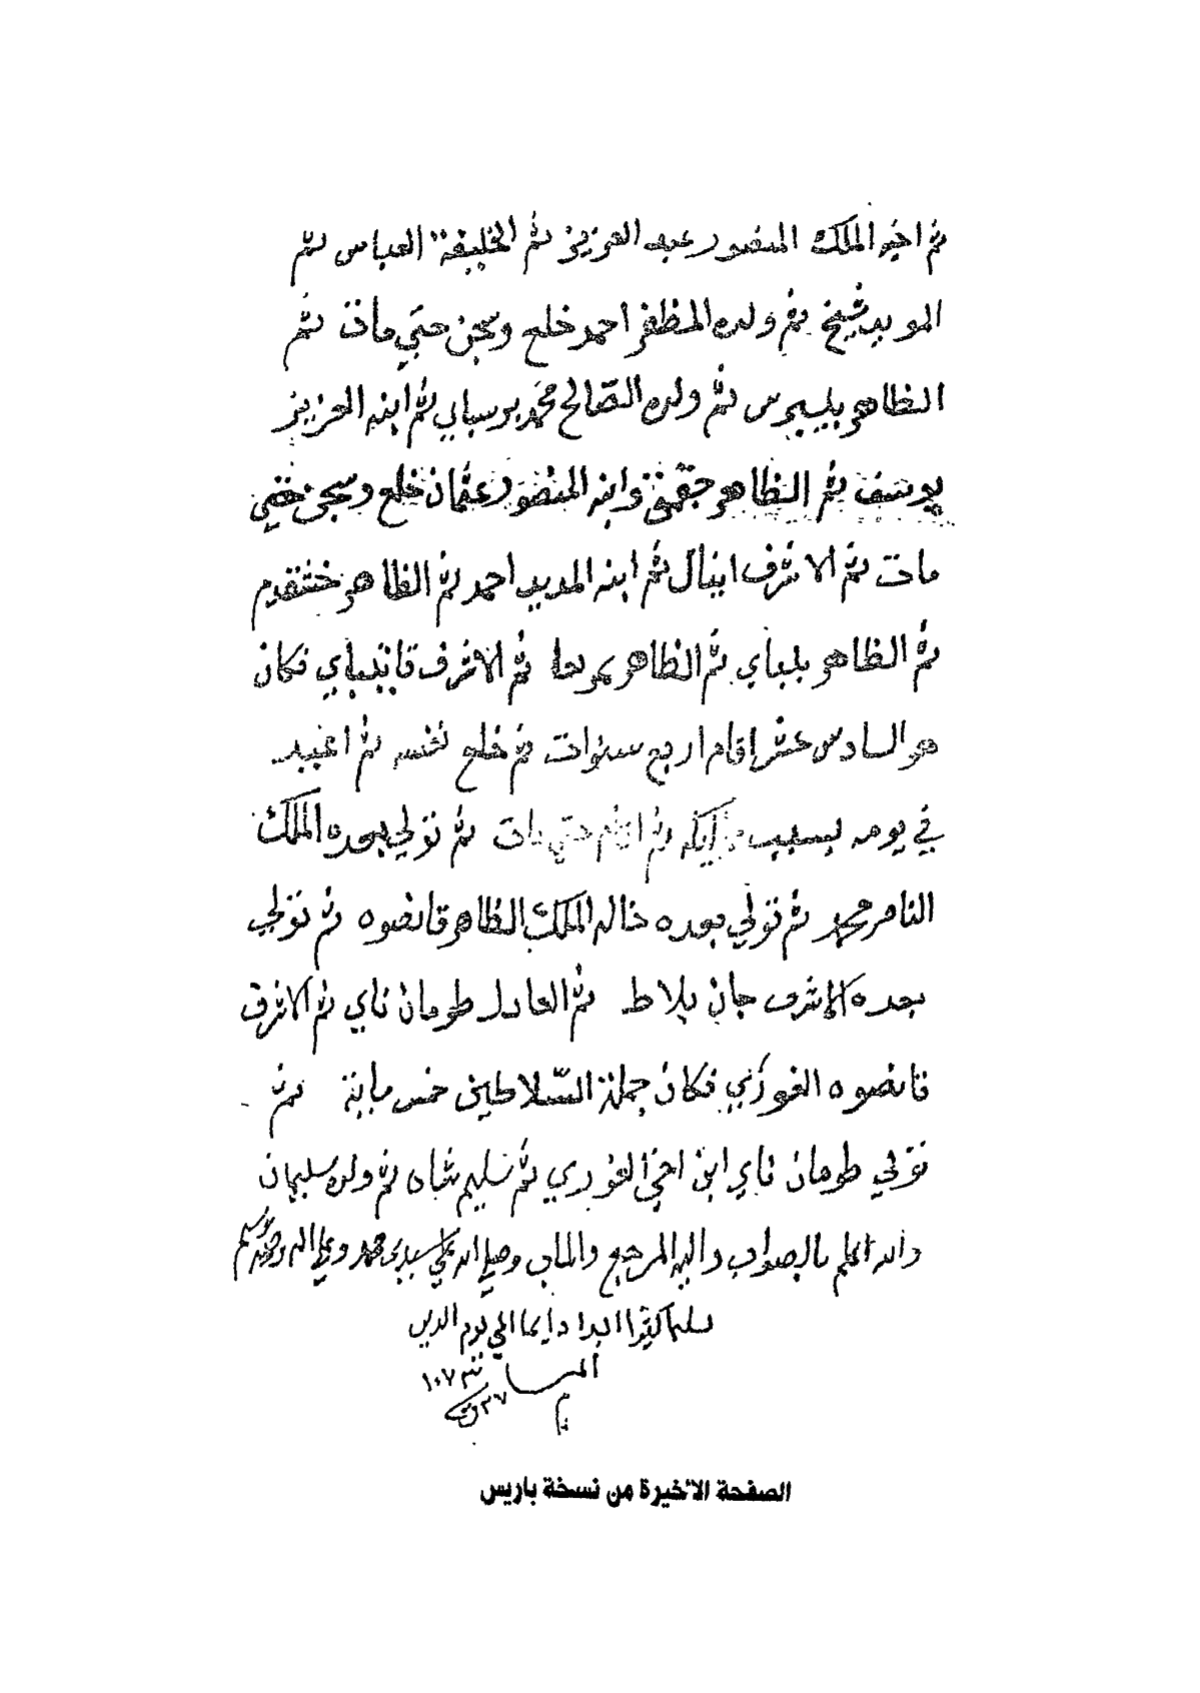 ثم اخيه الملك المنصور عبد العزيز ثم الخليفة العباس ثم
المويد شيخ ثم ولده المظفر احمد خلع وسجن حتي مات ثم
الظاهر بيبرس ثم ولده الصالح محمد برسباي ثم ابنه العزيز
يوسف ثم الظاهر جقمق وابنه المنصور عثمان خلع وسجن حتي
مات ثم الاشرف اينال ثم ابنه المويد احمد ثم الظاهر خشقدم
ثم الظاهر بلباي ثم الظاهر تمربغا ثم الاشرف قايتباي فكان
هو السادس عشر اقام اربع سنوات ثم خلع نفسه ثم اعيد
في يومه بسبب ثم اقام حتي مات ثم تولي بعده الملك
الناصر محمد ثم تولي بعده خاله الملك الظاهر قانصوه ثم تولي
بعده الاشرف جان بلاط ثم العادل طومان باي ثم الاشرف
قانصوه الغوري فكان جملة السلاطين خمس ماية ثم
تولي طومان باي ابن اخي الغوري ثم سليم شاه ثم ولده سليمان
والله اعلم بالصواب واليه المرجع والماب وصلي الله علي سيدنا محمد وعلي اله وصحبه وسلم
تسليما كثيرا ابدا دايما الي يوم الدين
١٠٧٣
الصفحة الأخيرة من نسخة باريس